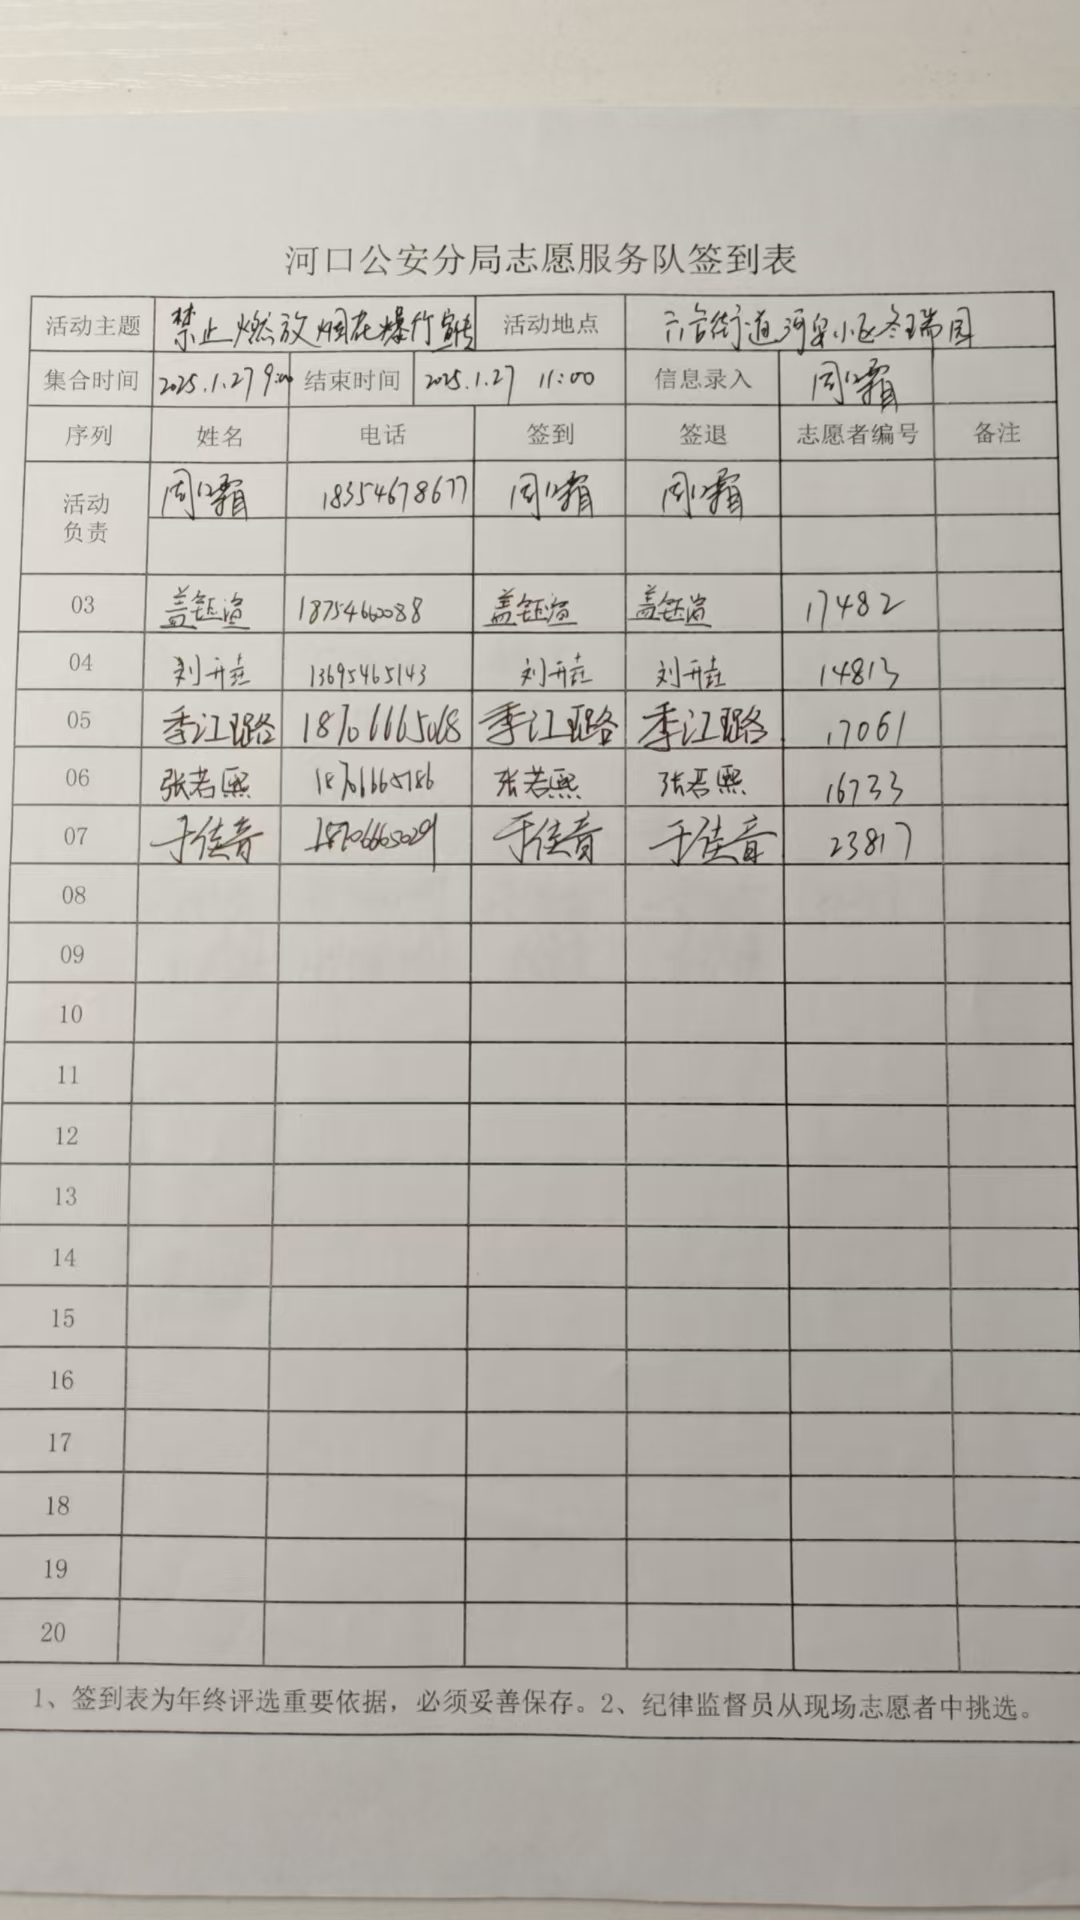 河口公安分局志愿服务队签到表
活动主题 禁止燃放烟花爆竹宣传 活动地点 六合街道河安小区冬瑞园
集合时间 2025.1.27 9:00 结束时间 2025.1.27 11:00 信息录入 周口霜
序列 姓名 电话 签到 签退 志愿者编号 备注
活动负责 周口霜 18354678677 周口霜 周口霜
03 盖钰渲 18754660088 盖钰渲 盖钰渲 17482
04 刘开垚 13695465143 刘开垚 刘开垚 14813
05 季江璐 季江璐 季江璐 17061
06 张若熙 18706665186 张若熙 张若熙 16733
07 于佳音 于佳音 于佳音 23817
08
09
10
11
12
13
14
15
16
17
18
19
20
1、签到表为年终评选重要依据，必须妥善保存。2、纪律监督员从现场志愿者中挑选。